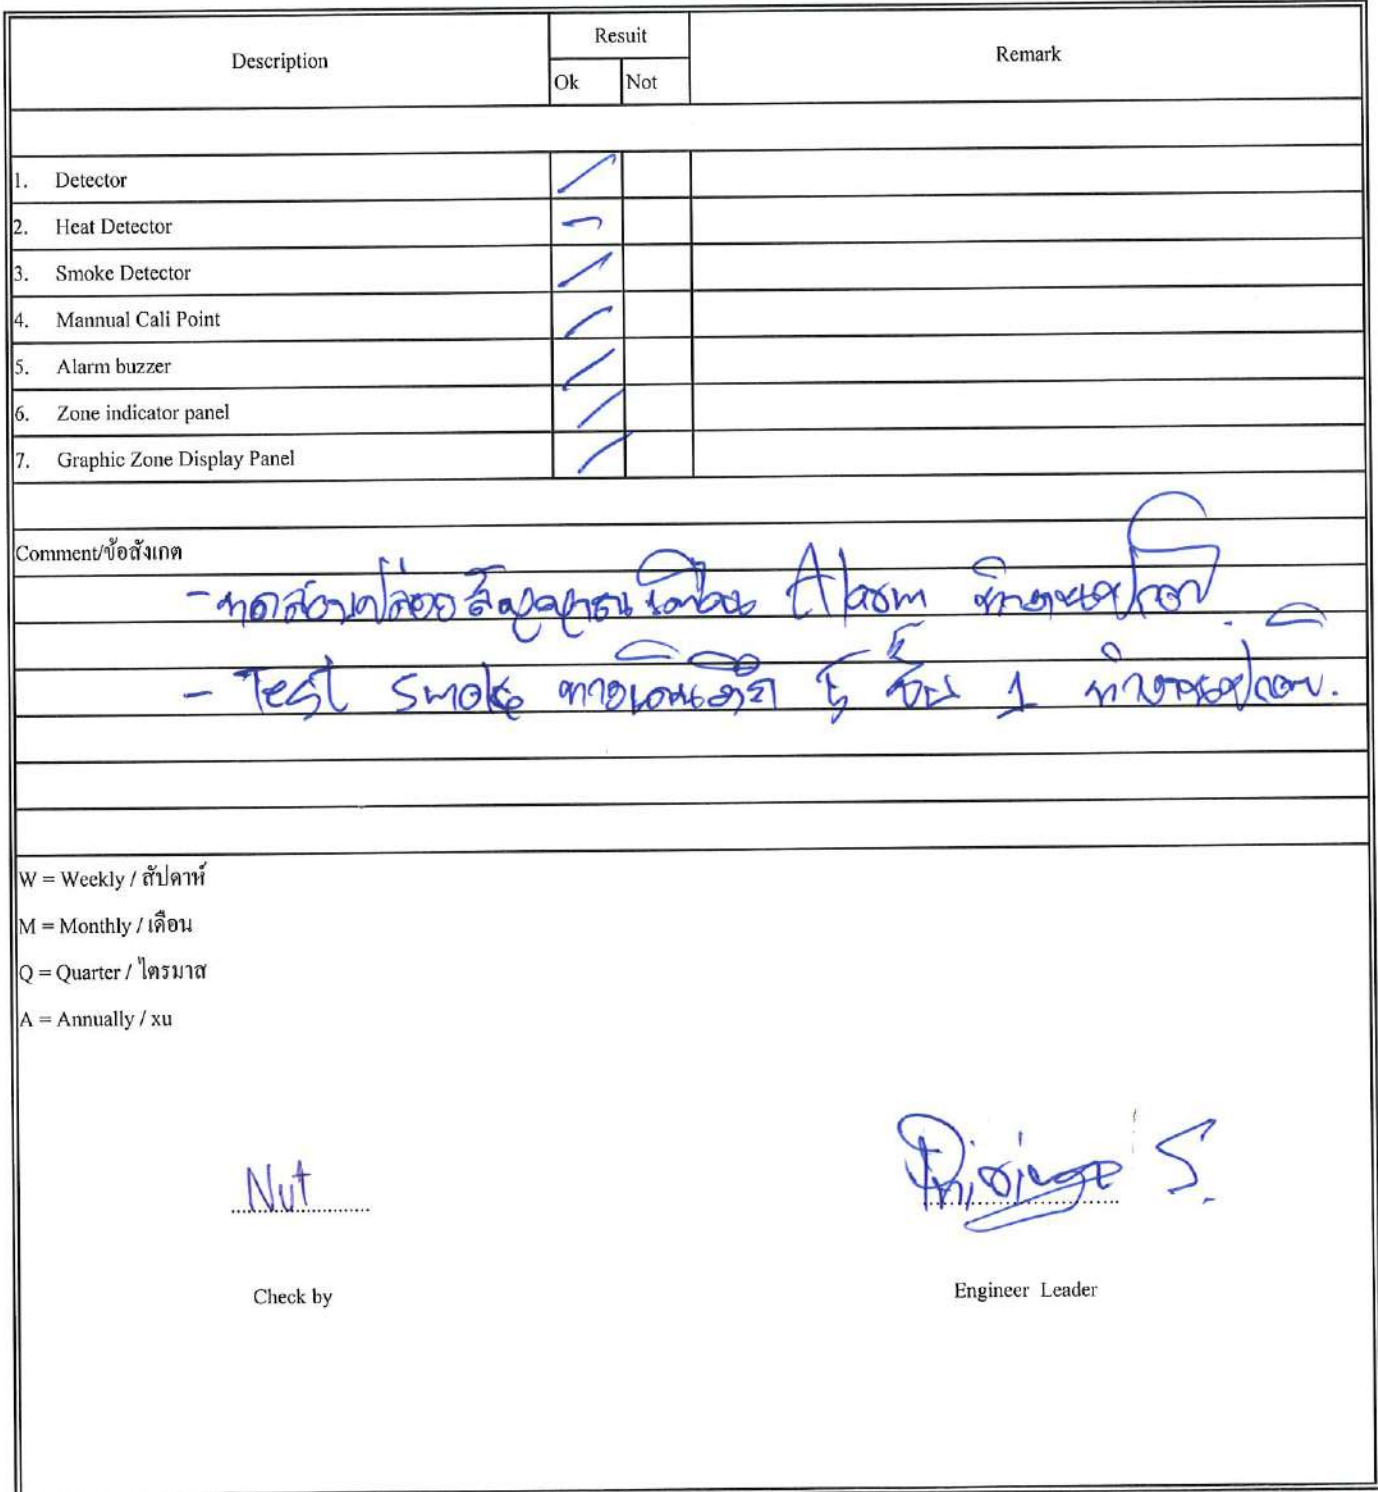 Description Resuit Remark
Ok Not
1. Detector /
2. Heat Detector -
3. Smoke Detector /
4. Mannual Cali Point /
5. Alarm buzzer /
6. Zone indicator panel /
7. Graphic Zone Display Panel /
Comment/ข้อสังเกต
- ทดสอบปล่อยสัญญาณเตือน Alarm ทำงานปกติ
- Test Smoke ทางเดิน ชั้น 1 ทำงานปกติ.
W = Weekly / สัปดาห์
M = Monthly / เดือน
Q = Quarter / ไตรมาส
A = Annually / xu
Nut S.
Check by Engineer Leader